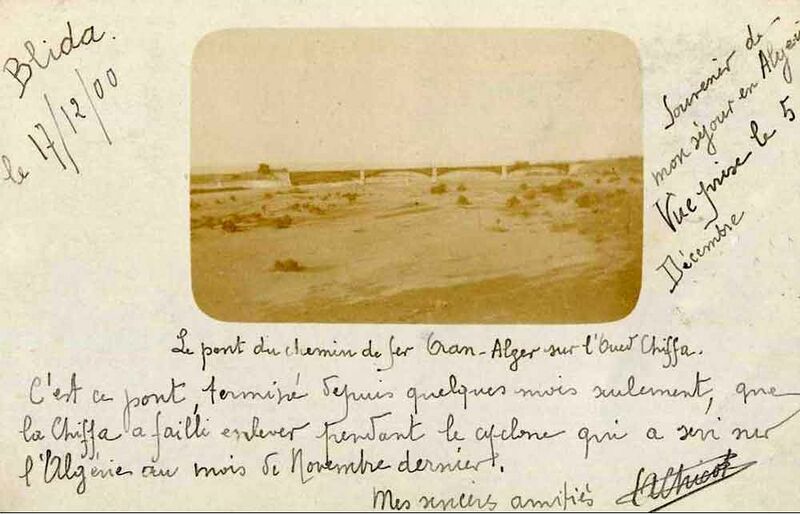 Blida.
le 17/12/00
Souvenir de
mon séjour en Algérie
Vue prise le 5
Décembre
Le pont du chemin de fer Oran-Alger sur l'Oued Chiffa.
C'est ce pont, terminé depuis quelques mois seulement, que
la Chiffa a failli enlever pendant le cyclone qui a sévi sur
l'Algérie au mois de Novembre dernier.
Mes sincères amitiés